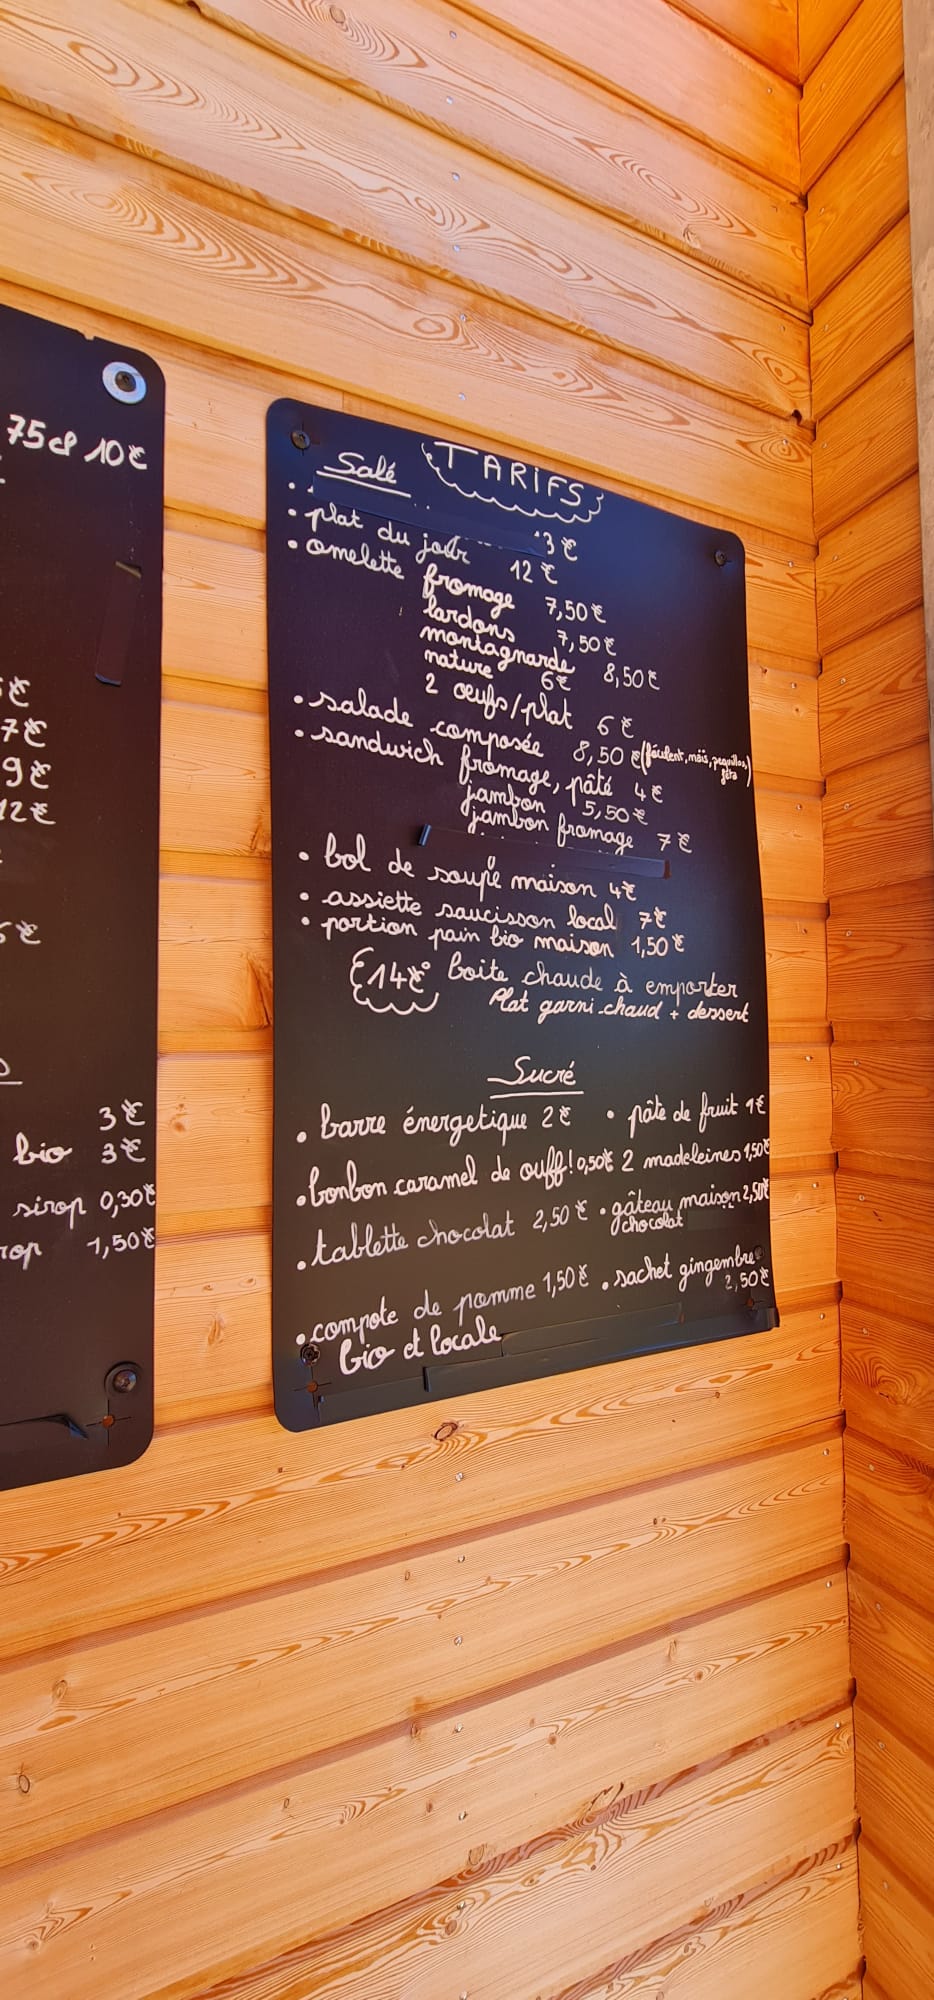 75cl 10€
7€
9€
12€
3€
bio 3€
sirop 0,30€
1,50€
TARIFS
Salé
3€
• plat du jour 12€
• omelette fromage 7,50€
lardons 7,50€
montagnarde 8,50€
nature 6€
2 œufs/plat 6€
• salade composée 8,50€ (féculent, maïs, pequillos, féta)
• sandwich fromage, pâté 4€
jambon 5,50€
jambon fromage 7€
• bol de soupe maison 4€
• assiette saucisson local 7€
• portion pain bio maison 1,50€
14€ boite chaude à emporter
Plat garni chaud + dessert
Sucré
• barre énergetique 2€ • pâte de fruit 1€
• bonbon caramel de ouff! 0,50€ 2 madeleines 1,50€
• tablette chocolat 2,50€ • gâteau maison 2,50€
chocolat
• compote de pomme 1,50€ • sachet gingembre
2,50€
bio et locale